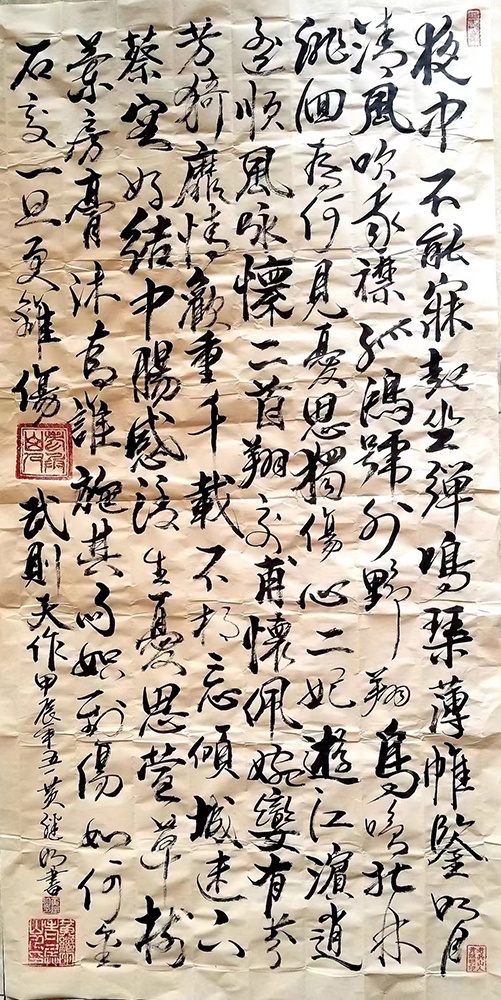 夜中不能寐起坐彈鳴琴薄帷鑒明月
清風吹我襟孤鴻號外野翔鳥鳴北林
徘徊将何見憂思獨傷心二妃遊江濱逍
遙順風咏懷二首翔交甫懷佩婉孌有芬
芳猗靡情歡重千載不相忘傾城迷下
蔡容好結中腸感激生憂思萱草樹
蘭房膏沐為誰施其雨怨傷如何金
石交一旦更離傷
武則天作甲辰年五一黄继明書